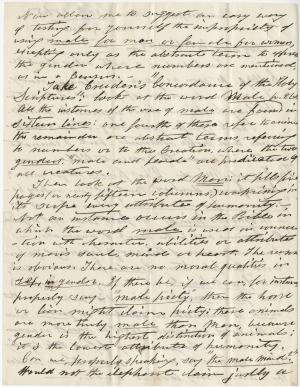 Now allow me to suggest an easy way
of testing for yourself the impropriety of
using male for man or female for woman,
excepting only as the abstract term to express
the gender where numbers are mentioned
as in a Census.—
Take Cruden's Concordance of the Holy
Scriptures: look at the word Male
all the instances of the use of male are found in
sixteen lines: one fourth of these refer to animals
the remainder are abstract terms, referring
to numbers or to the Creation, where the two
genders, "male and female" are predicated of
all creatures.
Then look at the word Man: it fills five
pages (or nearly fifteen columns;) comprising in
its scope every attribute of humanity.—
Not an instance occurs in the Bible in
which the word male is used in connec-
-tion with character, abilities or attributes
of man's soul, mind or heart. The reason
is obvious. There are no moral qualities in
gender. If there be, if we can, for instance
properly say male piety, then the horse
or lion might claim piety; these animals
are more truly male than Man, because
gender is the highest distinction of animals;
is the lowest attribute of humanity.
Can we, properly speaking, say the male mind?
Would not the elephant claim justly a